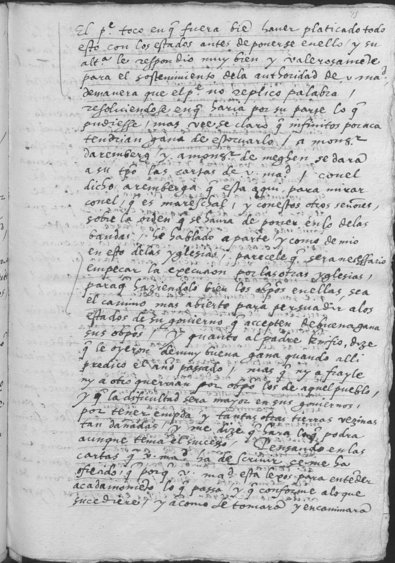 El p.e toco en q̃ fuera biẽ haver platicado todo
esto con los estados antes de ponerse en ello y su
alt.a le respondio muy bien y valerosamẽte
para el sostenimiento dela authoridad de v. mad
de manera que el p.e no replico palabra,
resolviendose en q̃ haria por su parte lo q̃
pudiesse, mas veese claro q̃ infinitos por aca
tendrian gana de estorvarlo, a mons.r
daremberg y a mons.r de meghen se dara
a su tpõ las cartas de v. mad, con el
dicho aremberga q̃ esta aqui, para mirar
con el, q̃ es mareschal, y con estos otros señores,
sobre la orden q̃ se havra de poner en lo delas
bandas, he hablado a parte, y como de mio
en esto delas yglesias, parecele q̃ sera necessario
empeçar la execucion por las otras yglesias,
para q̃ haziendolo bien los obpõs en ellas, sea
el camino mas abierto para persuadir a los
estados de su govierno q̃ accepten de buena gana
sus obpõs, y quanto al padre dize
q̃ le oyeron de muy buena gana quando alli
predico el año passado, mas q̃ ny a frayle
ny a otro querrian por obpõ los de aquel pueblo,
y q̃ la dificultad sera mayor en sus goviernos,
por tener en tantas otras tierras vezinas
tan dañadas, y me dize q̃ hara lo q̃ podra
aunque teme el sucesso. Pensando en las
cartas q̃ v. mad ha de screvir, se me ha
ofrecido, q̃ porq̃ v. mad esta lexos para entẽder
aca lo q̃ passa, y q̃ conforme a lo que
sucediere, y a como se tomara y encaminara